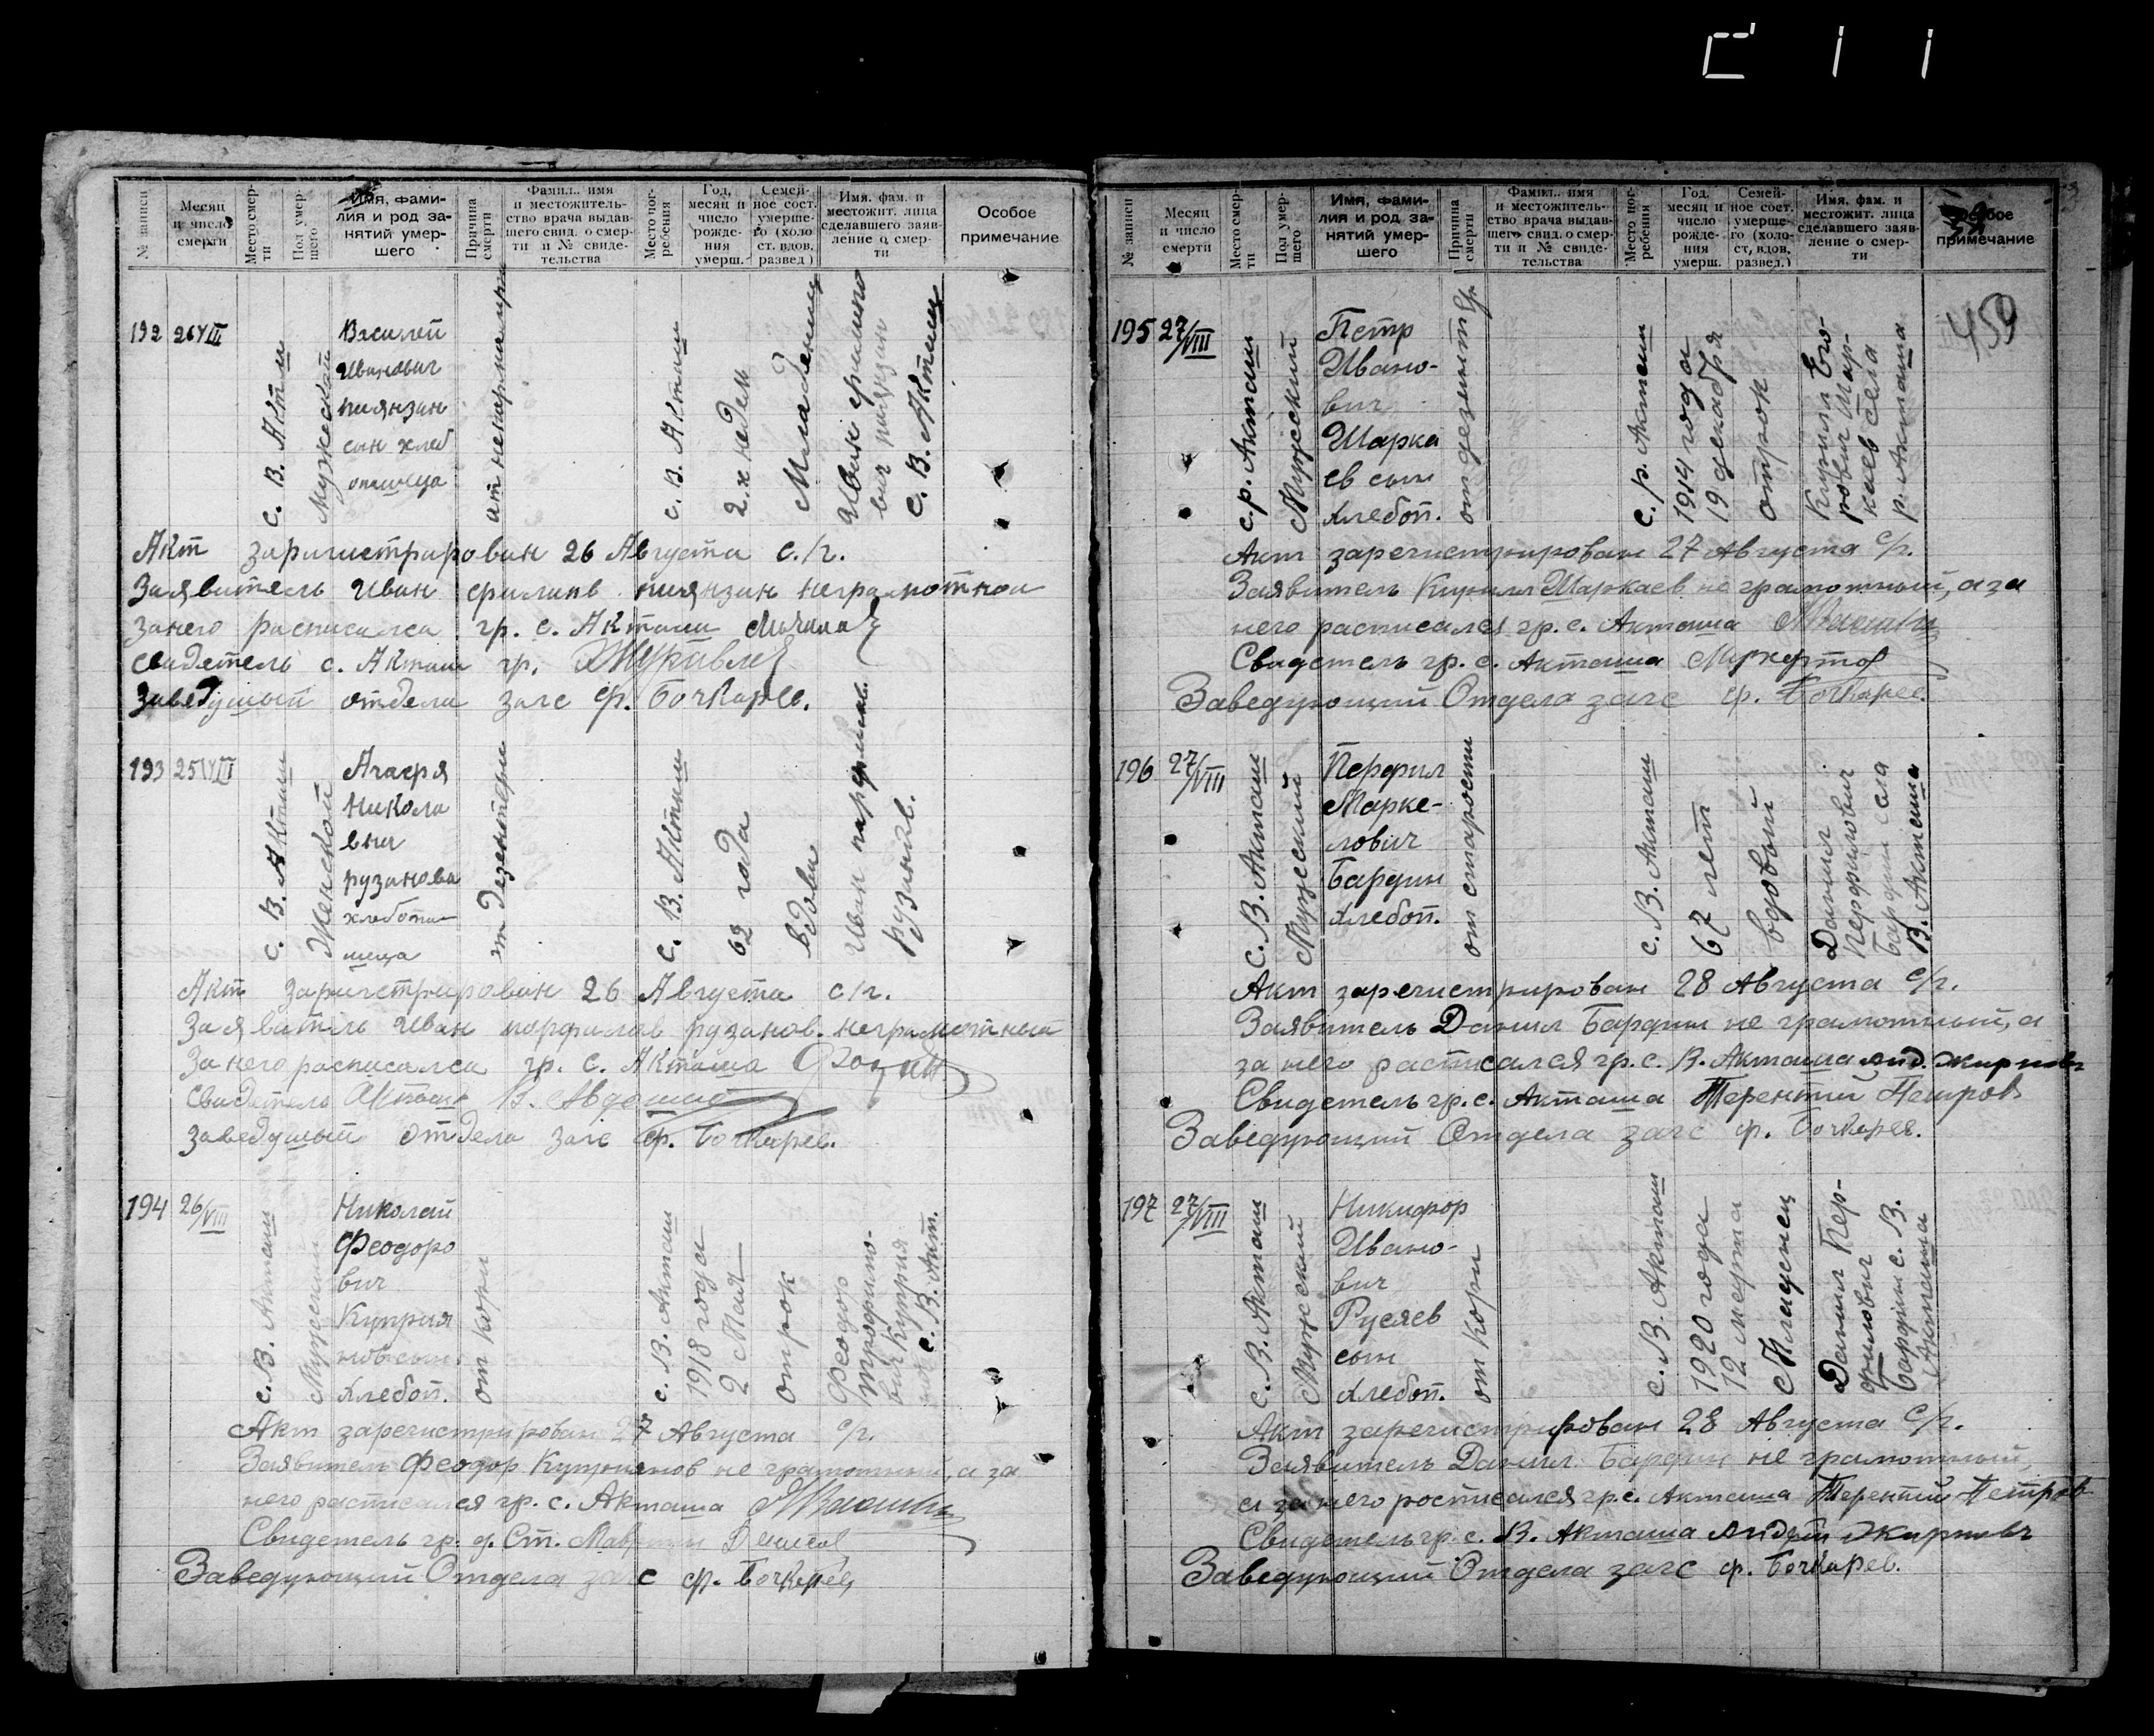 № записи
Месяц и число смерти
Место смерти
Пол умершего
Имя, фамилия и род занятий умершего
Причина смерти
Фамил., имя и местожительство врача выдавшего свид. о смерти и № свидетельства
Место погребения
Год, месяц и число рождения умерш.
Семейное сост. умершего (холост. вдов, развед.)
Имя, фам. и местожит. лица сделавшего заявление о смерти
Особое примечание
192
26 VIII
с. В. Акташ
Мужеской
Василей
Иванович
пиянзин
сын хлеб
опашца
с. В. Акташ
2.х недель
Младениц
Иван филипо
вич пиянзин
с. В. Акташ
Акт заригистрирован 26 Августа с./г.
Заявитель Иван филипв пиянзин неграмотной
занего расписалса гр. с. Акташ
свидетель с. Акташ гр. Журавлев
Заведушый отдела загс ф. Бочкарев.
193
25 VIII
с. В. Акташ
Женской
Агафя
Никола
вна
рузанова
хлебопа
шеца
от дезентери
с. В. Акташ
62 года
вдова
Иван парфилв.
рузанов.
Акт заригстрирован 26 Августа с/г.
Заявитль Иван порфилов рузанов. неграмотный
За него расписалса гр. с. Акташа
Свидетель Акташ В.
заведушый отдела загс ф. Бочкарев.
194
26/VIII
с. В. Акташ
Мужеский
Николай
Феодоро
вич
Куприя
нов сын
хлебоп.
от кори
с. В. Акташ
1918 года
2 Мая
отрок
Феодор
Трофимо-
вич Куприя
нов с. В. Акт.
Акт зарегистрирован 27 Августа с/г.
Заявитель Феодор Куприянов не грамотный, а за
него расписался гр. с. Акташа
Свидетель гр. д. Ст. Маврин Денисов
Заведующий Отдела загс ф. Бочкарев
№ записи
Месяц и число смерти
Место смерти
Пол умершего
Имя, фамилия и род занятий умершего
Причина смерти
Фамил., имя и местожительство врача выдавшего свид. о смерти и № свидетельства
Место погребения
Год, месяц и число рождения умерш.
Семейное сост. умершего (холост, вдов, развед.)
Имя, фам. и местожит. лица сделавшего заявление о смерти
Особое примечание
459
195
27/VIII
с. р. Акташ
Мужеский
Петр
Ивано-
вич
Шарка
ев сын
хлебоп.
от дезинт.
с. р. Акташ
1914 года
19 декабря
отрок
Кирилл Его-
рович Шар-
каев села
р. Акташа
Акт зарегистрирован 27 Августа с/г.
Заявитель Кирилл Шаркаев не грамотный, а за
него расписался гр. с. Акташа
Свидетель гр. с. Акташа
Заведующий Отдела загс ф. Бочкарев.
196
27/VIII
с. В. Акташ
Мужеский
Перфил
Марке-
лович
Бардин
хлебоп.
от старости
с. В. Акташ
67 лет
вдовый
Данил
Перфилович
Бардин села
В. Акташа
Акт зарегистрирован 28 Августа с/г.
Заявитель Данил Бардин не грамотный, а
за него расписался гр. с. В. Акташа
Свидетель гр. с. Акташа Терентий Петров
Заведующий Отдела загс ф. Бочкарев.
197
27/VIII
с. В. Акташ
Мужеский
Никифор
Ивано-
вич
Русяев
сын
хлебоп.
от кори
с. В. Акташ
1920 года
12 марта
Младенец
Данил Пер-
филович
Бардин с. В.
Акташа
Акт зарегистрирован 28 Августа с/г.
Заявитель Данил Бардин не грамотный,
а за него росписался гр. с. Акташа Терентий Петров
Свидетель гр. с. В. Акташа
Заведующий Отдела загс ф. Бочкарев.